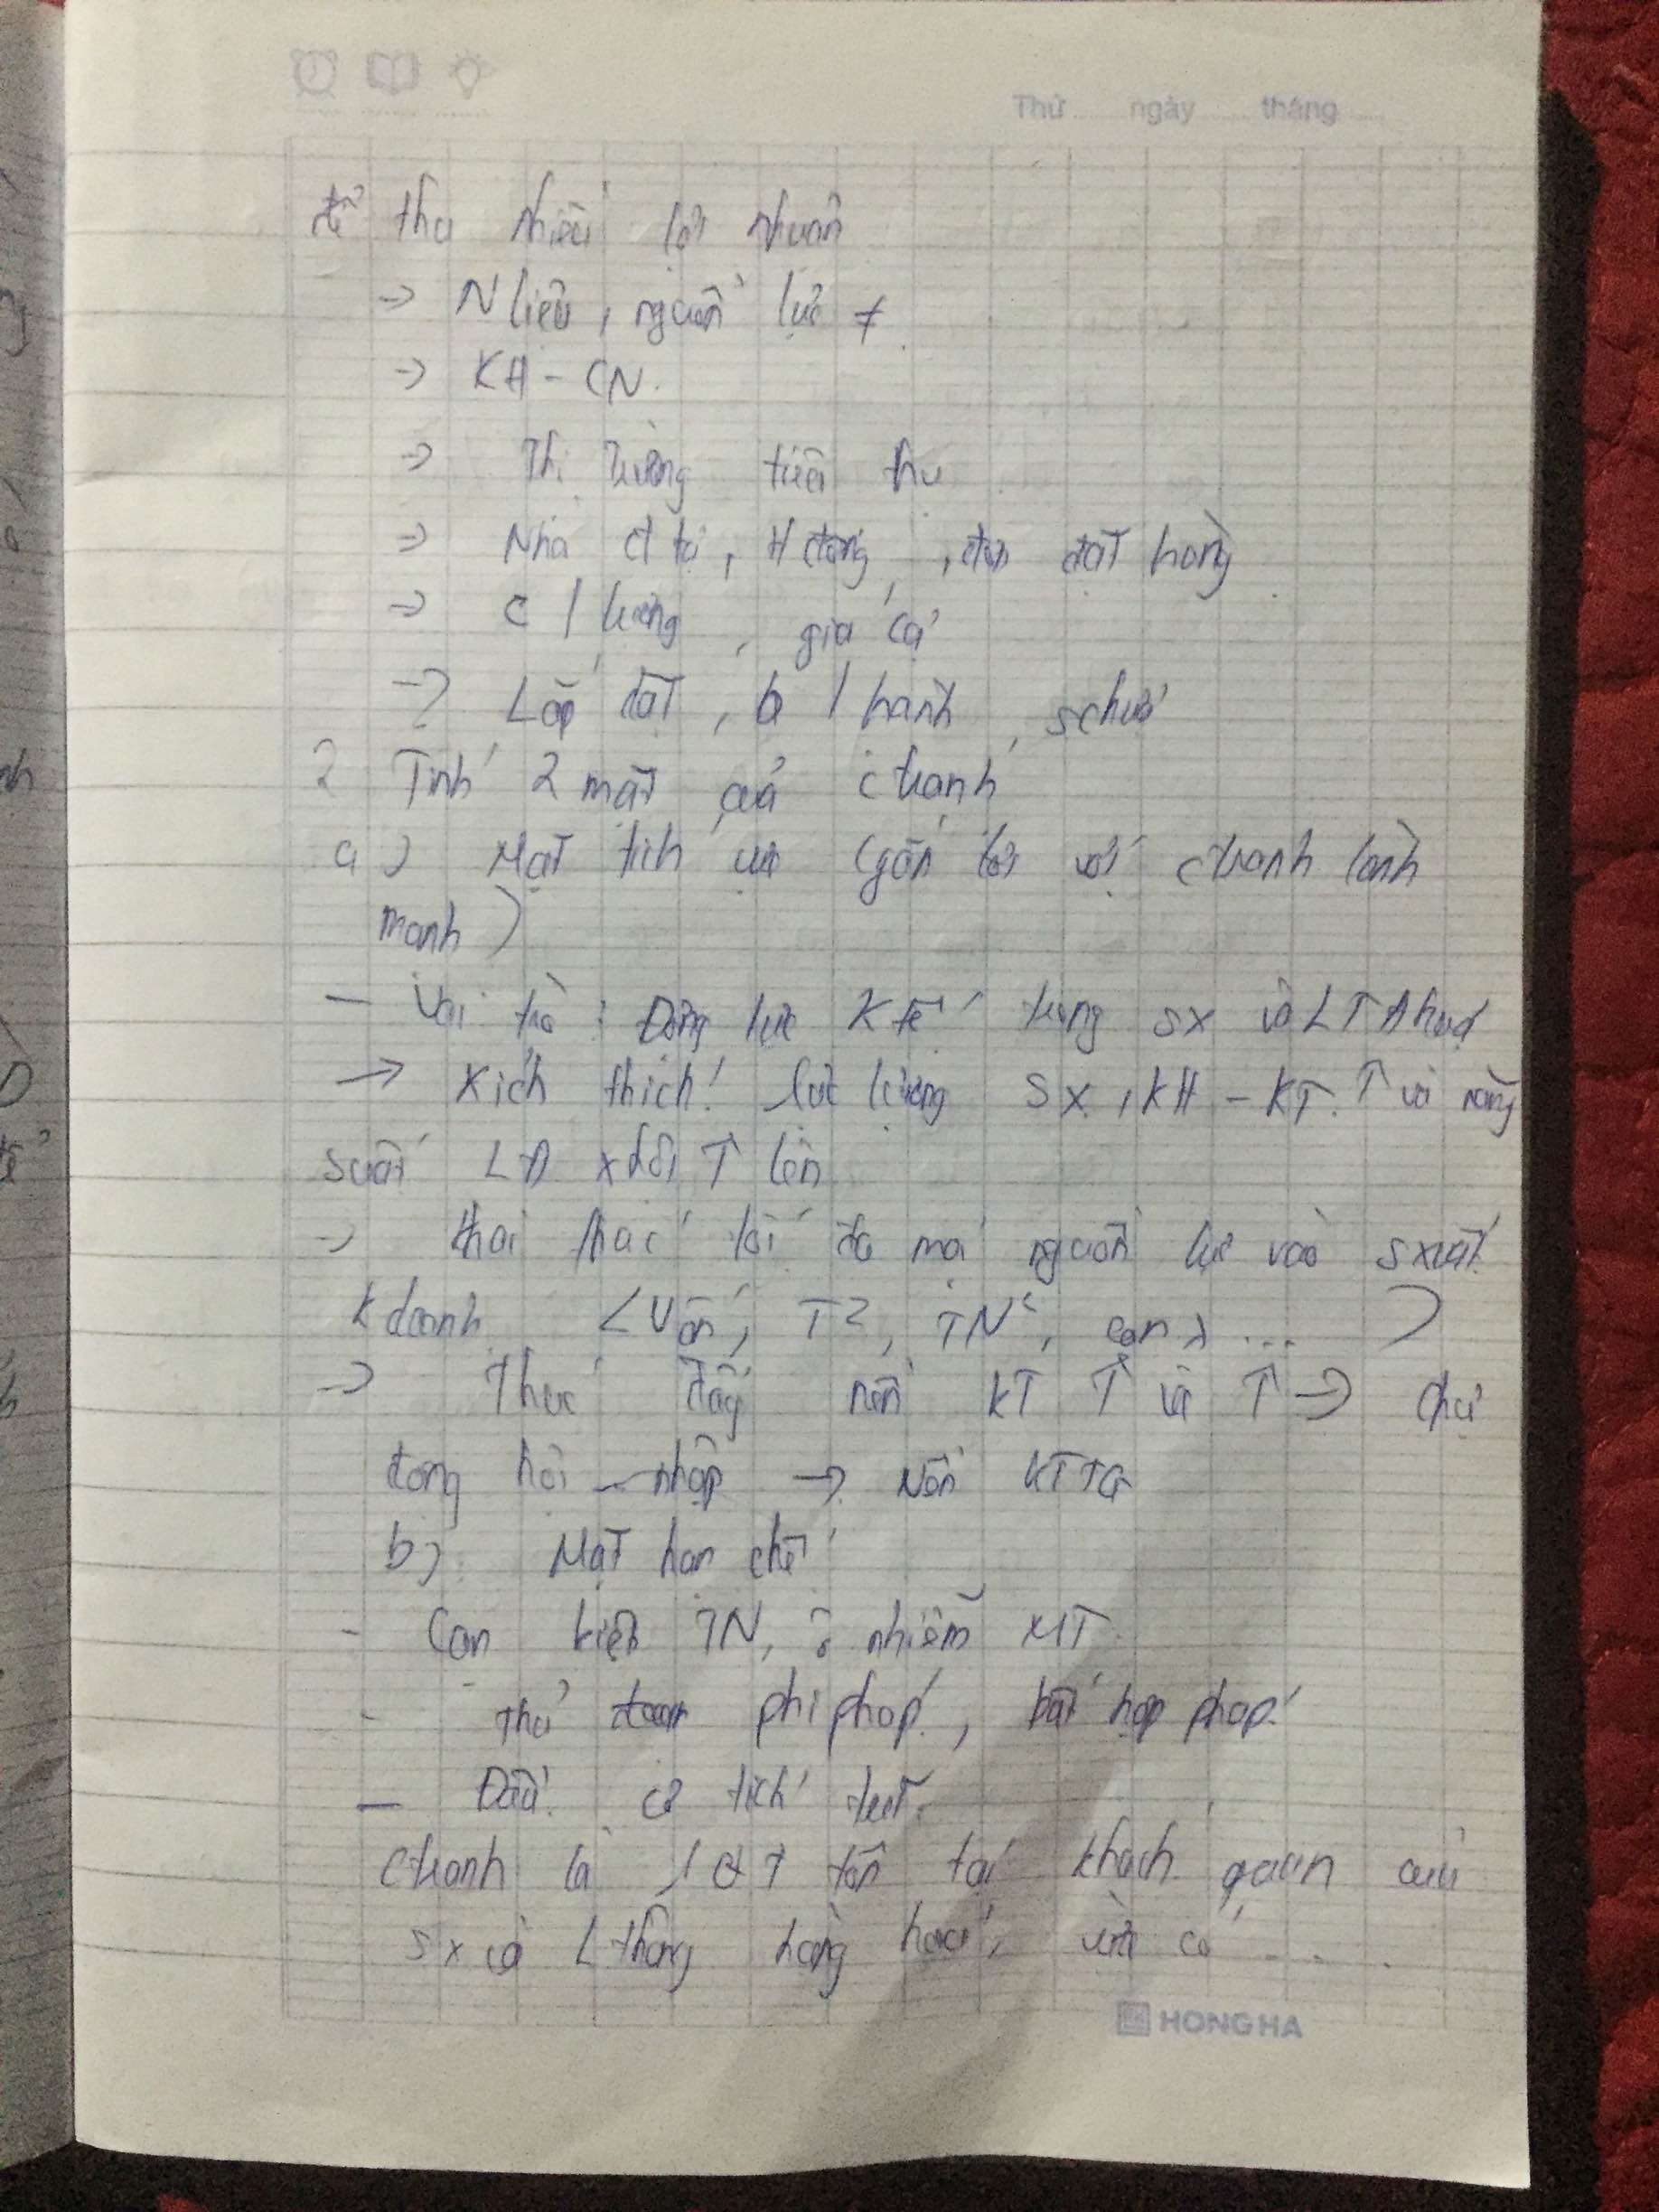 Thứ ngày tháng
để thu nhiều lợi nhuận
→ N liệu, nguồn lực ≠
→ KH - CN.
→ Thị trường tiêu thụ
→ Nhà đ tư, H đồng, đơn đặt hàng
→ C / lượng, giá cả
→ Lắp đặt, b / hành, s chữa
2 Tính 2 mặt của c tranh
a) Mặt tích cực (gắn lời với c tranh lành
mạnh)
- Vai trò: Động lực K tế trong sx và LT hhoá
→ Kích thích! lực lượng SX, KH - KT ↑ và năng
suất LĐ xhội ↑ lên
→ khai thác tối đa mọi nguồn lực vào sxuất
k doanh (Vốn, TN, con ...)
→ Thúc đẩy nền KT ↑ và ↑ → chủ
động hội nhập → Nền KTTG
b) Mặt hạn chế
- Cạn kiệt TN, ô nhiễm MT.
- Thủ đoạn phi pháp, bất hợp pháp
- Đầu cơ tích trữ.
C tranh là 1 QT tồn tại khách quan của
sx và L thông hàng hoá, vừa có ...
HONG HA